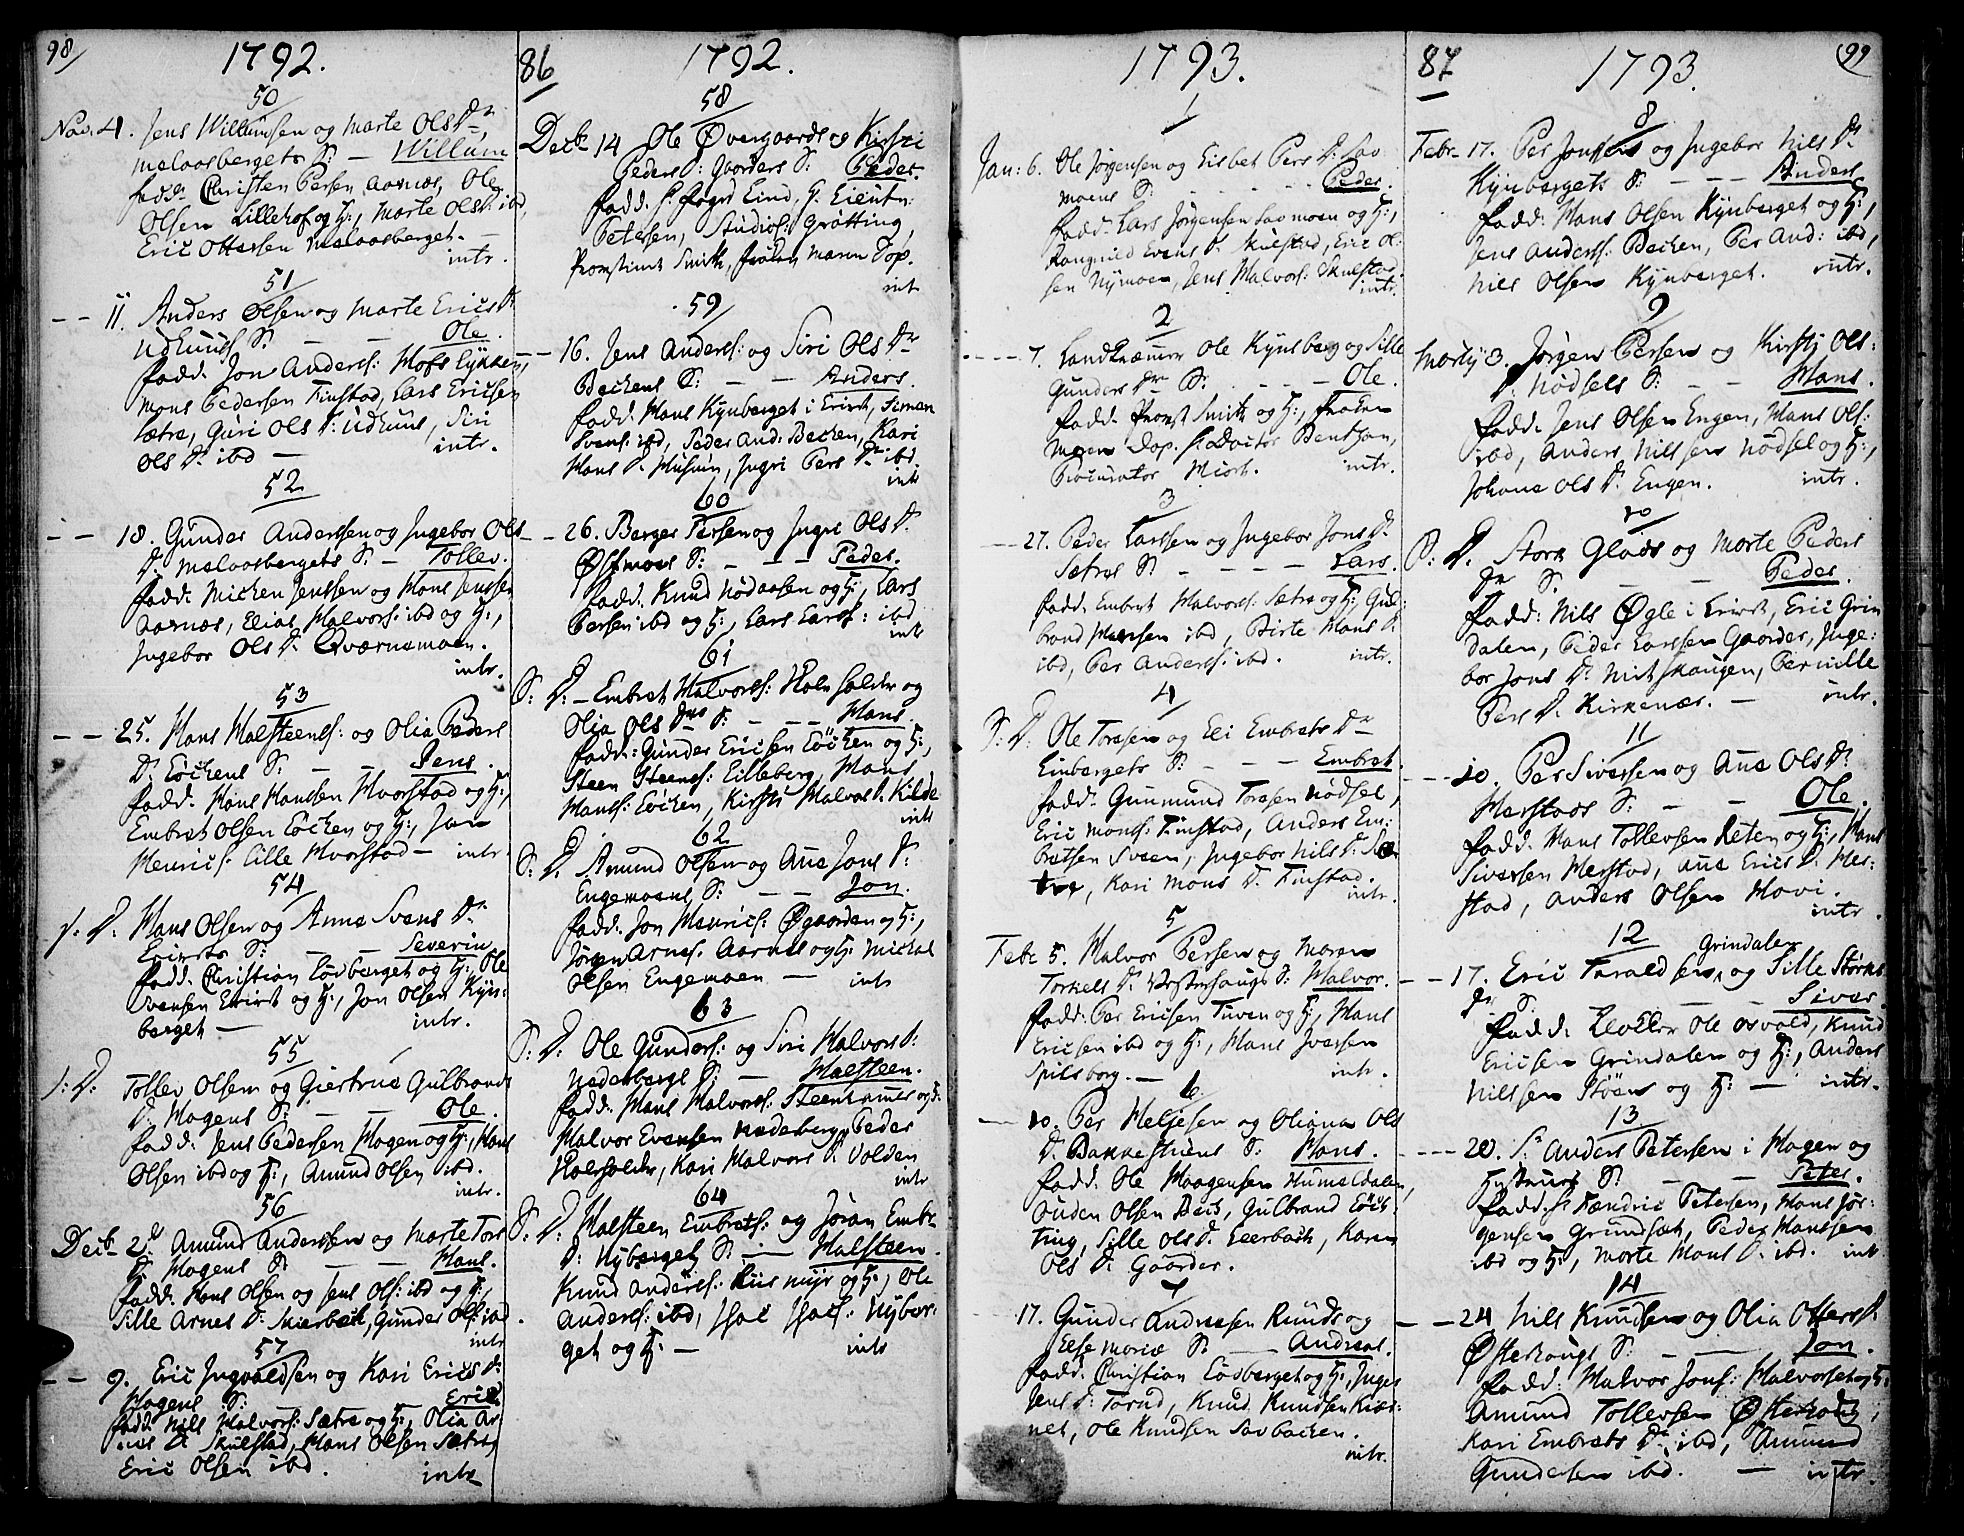 98/
1792.
50
Nov. 4. Jens Willumsen og Marte Ols Dr
Melaasbergets S: — Willum
fadd. Christen Persen Aarnæs, Ole
Olsen Lillehof og H:, Marte Ols D: ibd,
Eric Ottersen Melaasberget. —
intr.
51
— — 11. Anders Olsen og Marte Erics D.
Udkuns S. — — Ole.
fadd. Jon Anderss: Mofs Lykken,
Mons Pedersen Finstad, Lars Ericsen
Sætre, Guri Ols D: Udkuns, Siri
Ols D. ibd — intr.
52
— — 18. Gunder Anderssen og Ingebor Ols
D. Melaasbergets S. — Tollev.
fadd. Michen Jenssen og Hans Jenssen
Aarnæs, Elias Halvors: ibd og H:,
Ingebor Ols D. Qværnemoen.
intr.
53
— — 25. Hans Halsteens: og Olia Peders
D. Löckens S. — — Jens.
fadd. Hans Hansen Hvorstad og H:,
Embret Olsen Löcken og H:, Jon
Henrics. Lille Hvorstad — intr.
54
S: D: Hans Olsen og Anne Svens D.
S: — — Severin
fadd. Christian Lövberget og H: Ole
Svensen og H:, Jon Olsen Kyn:
berget — intr.
55
S: D: Tollev Olsen og Giertrue Gulbrands
D. Hagens S: — — Ole.
fadd: Jens Pedersen Hagen og H:, Hans
Olsen ibd og H:, Amund Olsen ibd.
intr.
56
Decb 2. Amund Anderssen og Marte Tors
D. Hagens S. — — Hans.
fadd. Hans Olsen og Jens Ols: ibd og H:,
Sille Arnes D. Skierbek, Gunder Ols: ibd
intr
57
— — 9. Eric Ingvaldsen og Kari Erics D.
Hagens S: Eric
fadd. Nils Halvors: Sætre og H:, Olia Ar
nes D. Skulstad, Hans Olsen Sætre,
Eric Olsen ibd. intr
86
1792.
58
Decb 14 Ole Övergaards og Kirsti
Peders D: Gaarders S: Peder
fadd. H. Foged Lind, H. Lieutn:
Petersen, Studios: Grötting,
Promstinde Smith, Fröken Maren Dop.
intr
59
16. Jens Anderss: og Siri Ols Dr
Beckens S: — — Anders.
fadd. Hans Kynberget i, Simen
Svens: ibd, Peder And: Becken, Kari
Hans D. Musum, Ingri Pers Dr ibd.
intr
60
— 26. Berger Persen og Ingri Ols D.
Östmoes S: — — — Peder.
fadd. Knud Nödaasen og H:, Lars
Persen ibd og H:, Lars Larss: ibd
intr
61
S: D: — Embret Halvorss: og
Olia Ols Drs S: — — Hans.
fadd: Gunder Ericsen Löcken og H:,
Steen Steens: Lilleberg, Hans
Hans: Löcken, Kirsti Halvors D. Kilde
intr
62
S: D. Amund Olsen og Ane Jons D:
Engemoens S: — — Jon.
fadd. Jon Henrics: Ögaarden og H:,
Jörgen Arnes. Aarnes og H: Mickel
Olsen Engemoen — intr
63
S: D: Ole Gunders: og Siri Halvors D:
Nederbergs S: — Halsteen.
fadd: Hans Halvors: Steenhammer og H:
Halvor Evensen Nederberg, Peder
, Kari Halvors D. Volden
intr
64
S: D. Halsteen Embrets: og Joran Embr.
D. Nyberget S: — Halsteen.
Knud Anders: Riis myr og H:, Ole
Anders: ibd, Isac Isacs: Nyber:
get og H: — intr
1793.
1
Jan: 6. Ole Jörgensen og Lisbet Pers D. Sav
moens S: — — — Peder.
fadd. Lars Jörgensen Savmoen og H:,
Rangnild Evens D. Skulstad, Eric Ol:
sen Nymoen, Jens Halvors: Skulstad.
intr.
2
— — 7. Landkræmmer Ole Kynsberg og Sille
Gunders Dr S. — — — Ole.
fadd. Promst Smith og H:, Fröken
Maren Dop. H. Doctor Bentzen,
Procurator Mört. intr.
3
— 27. Peder Larssen og Ingebor Jons D.
Sætres S. — — — — Lars.
fadd. Embret Halvors: Sætre og H: Gul:
brand Hansen ibd, Birte Hans D.
ibd, Per Anders: ibd. intr.
4
S: D: Ole Toresen og Eli Embrets Dr
Linbergets S: — — — Embret.
fadd. Gunmund Toresen Nödsel,
Eric Mons: Finstad, Anders Em:
bretsen Sveen, Ingebor Nils D:
, Kari Mons D. Finstad.
intr.
5
Febr. 5. Halvor Persen og Maren
Torkels D. Vesterhaugs S: Halvor.
fadd: Per Ericsen Tuven og H:, Hans
Ericsen ibd og H:, Hans Iversen
Spilsborg. — intr.
6
— 10. Per Heljesen og Oliana Ols
D. Bakkestuens S: Hans.
fadd. Ole Haagensen Humeldalen,
Ouden Olsen Beck, Gulbrand Löck:
ting, Sille Ols D. Leerback, Karen
Ols D. Gaarder.
7
17. Gunder Andreasen Runds og
Else Marie S. — — Andreas.
fadd. Christian Lövberget og H:, Inger
Jens D: Torud, Knud Knudsen Kier:
net, Ole Knudsen Savbacken.
intr.
87
1793
99
8
Febr. 17. Per Jonsens og Ingebor Nils D.
Kynbergets S: — — — Anders
fadd: Hans Olsen Kynberget og H:,
Jens Anders: Becken, Per And: ibd,
Nils Olsen Kynberget. intr.
9
Martij 3. Jörgen Persen og Kirstj Ols:
D. Nödsels S: — — Hans.
fadd. Jens Olsen Engen, Hans Ols:
ibd, Anders Nilssen Nödsel og H:,
Johane Ols D. Engen. intr.
10
S: D. Stork Glads og Marte Peders
Dr S. — — Peder.
fadd: Nils Ögle i, Eric Grin
dalen, Peder Larssen Gaarder, Inge:
bor Jons D. Mitskaugen, Pernille
Pers D. Kirkenær. — intr.
11
— — 10. Per Siversen og Ane Ols D.
Herstads S: — — Ole.
fadd. Hans Tollevsen Reten og H:, Hans
Siversen Herstad, Ane Erics D. Her:
stad, Anders Olsen Hovi.
intr.
12
Grindalen
— — 17. Eric Taraldsen, og Sille Storks
Dr S. — — Siver.
fadd: Ole Osvold, Knud
Ericsen Grindalen og H:, Anders
Nilssen Stöen og H: — intr.
13
— — 20. S. Anders Petersen i Hagen og
Hustrues S. — — Peter.
fadd: H. Fændric Petersen, Hans Jör:
gensen Grundset, Peder Hanssen
ibd og H:, Marte Hans D. ibd. intr
14
— — 24 Nils Knudsen og Olia Otters D.
Österhougs S: — — Jon.
fadd. Halvor Jons: Halvorset og H:
Amund Tollevsen Österhoug,
Kari Embrets D. ibd, Amund
Gundersen ibd. — intr.